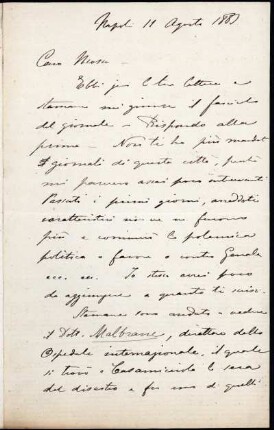 Napoli 11 Agosto 1883
Caro Mosso
Ebbi jeri la tua lettera e
stamane mi giunse il fascicolo
del giornale — Rispondo alla
prima — Non ti ho più mandato
giornali di questa città, perché
mi parvero assai poco interessanti
Passati i primi giorni, aneddoti
caratteristici non ve ne furono
più e cominciò la polemica
politica a favore o contro Genala
ecc. ecc. Io stesso avrei poco
da aggiungere a quanto ti scrissi.
Stamane sono andato a vedere
il Dott. Malbranc, direttore dello
Ospedale internazionale, il quale
si trovò a Casamicciola la sera
del disastro e fu uno di quelli